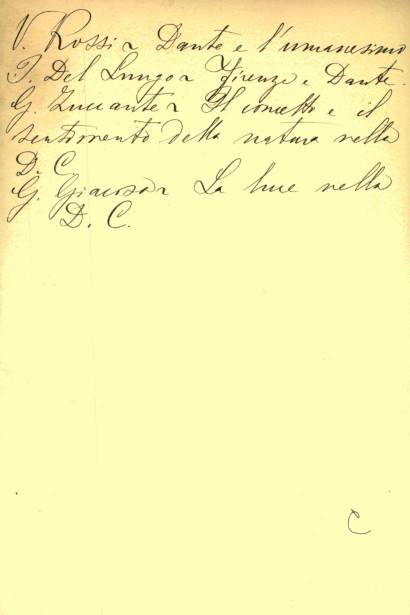 V. Rossi - Dante e l'umanesimo
I. Del Lungo - Firenze e Dante.
G. Zuccante - Il concetto e il
sentimento della natura nella
D. C.
G. Giacosa - La luce nella
D. C.
C